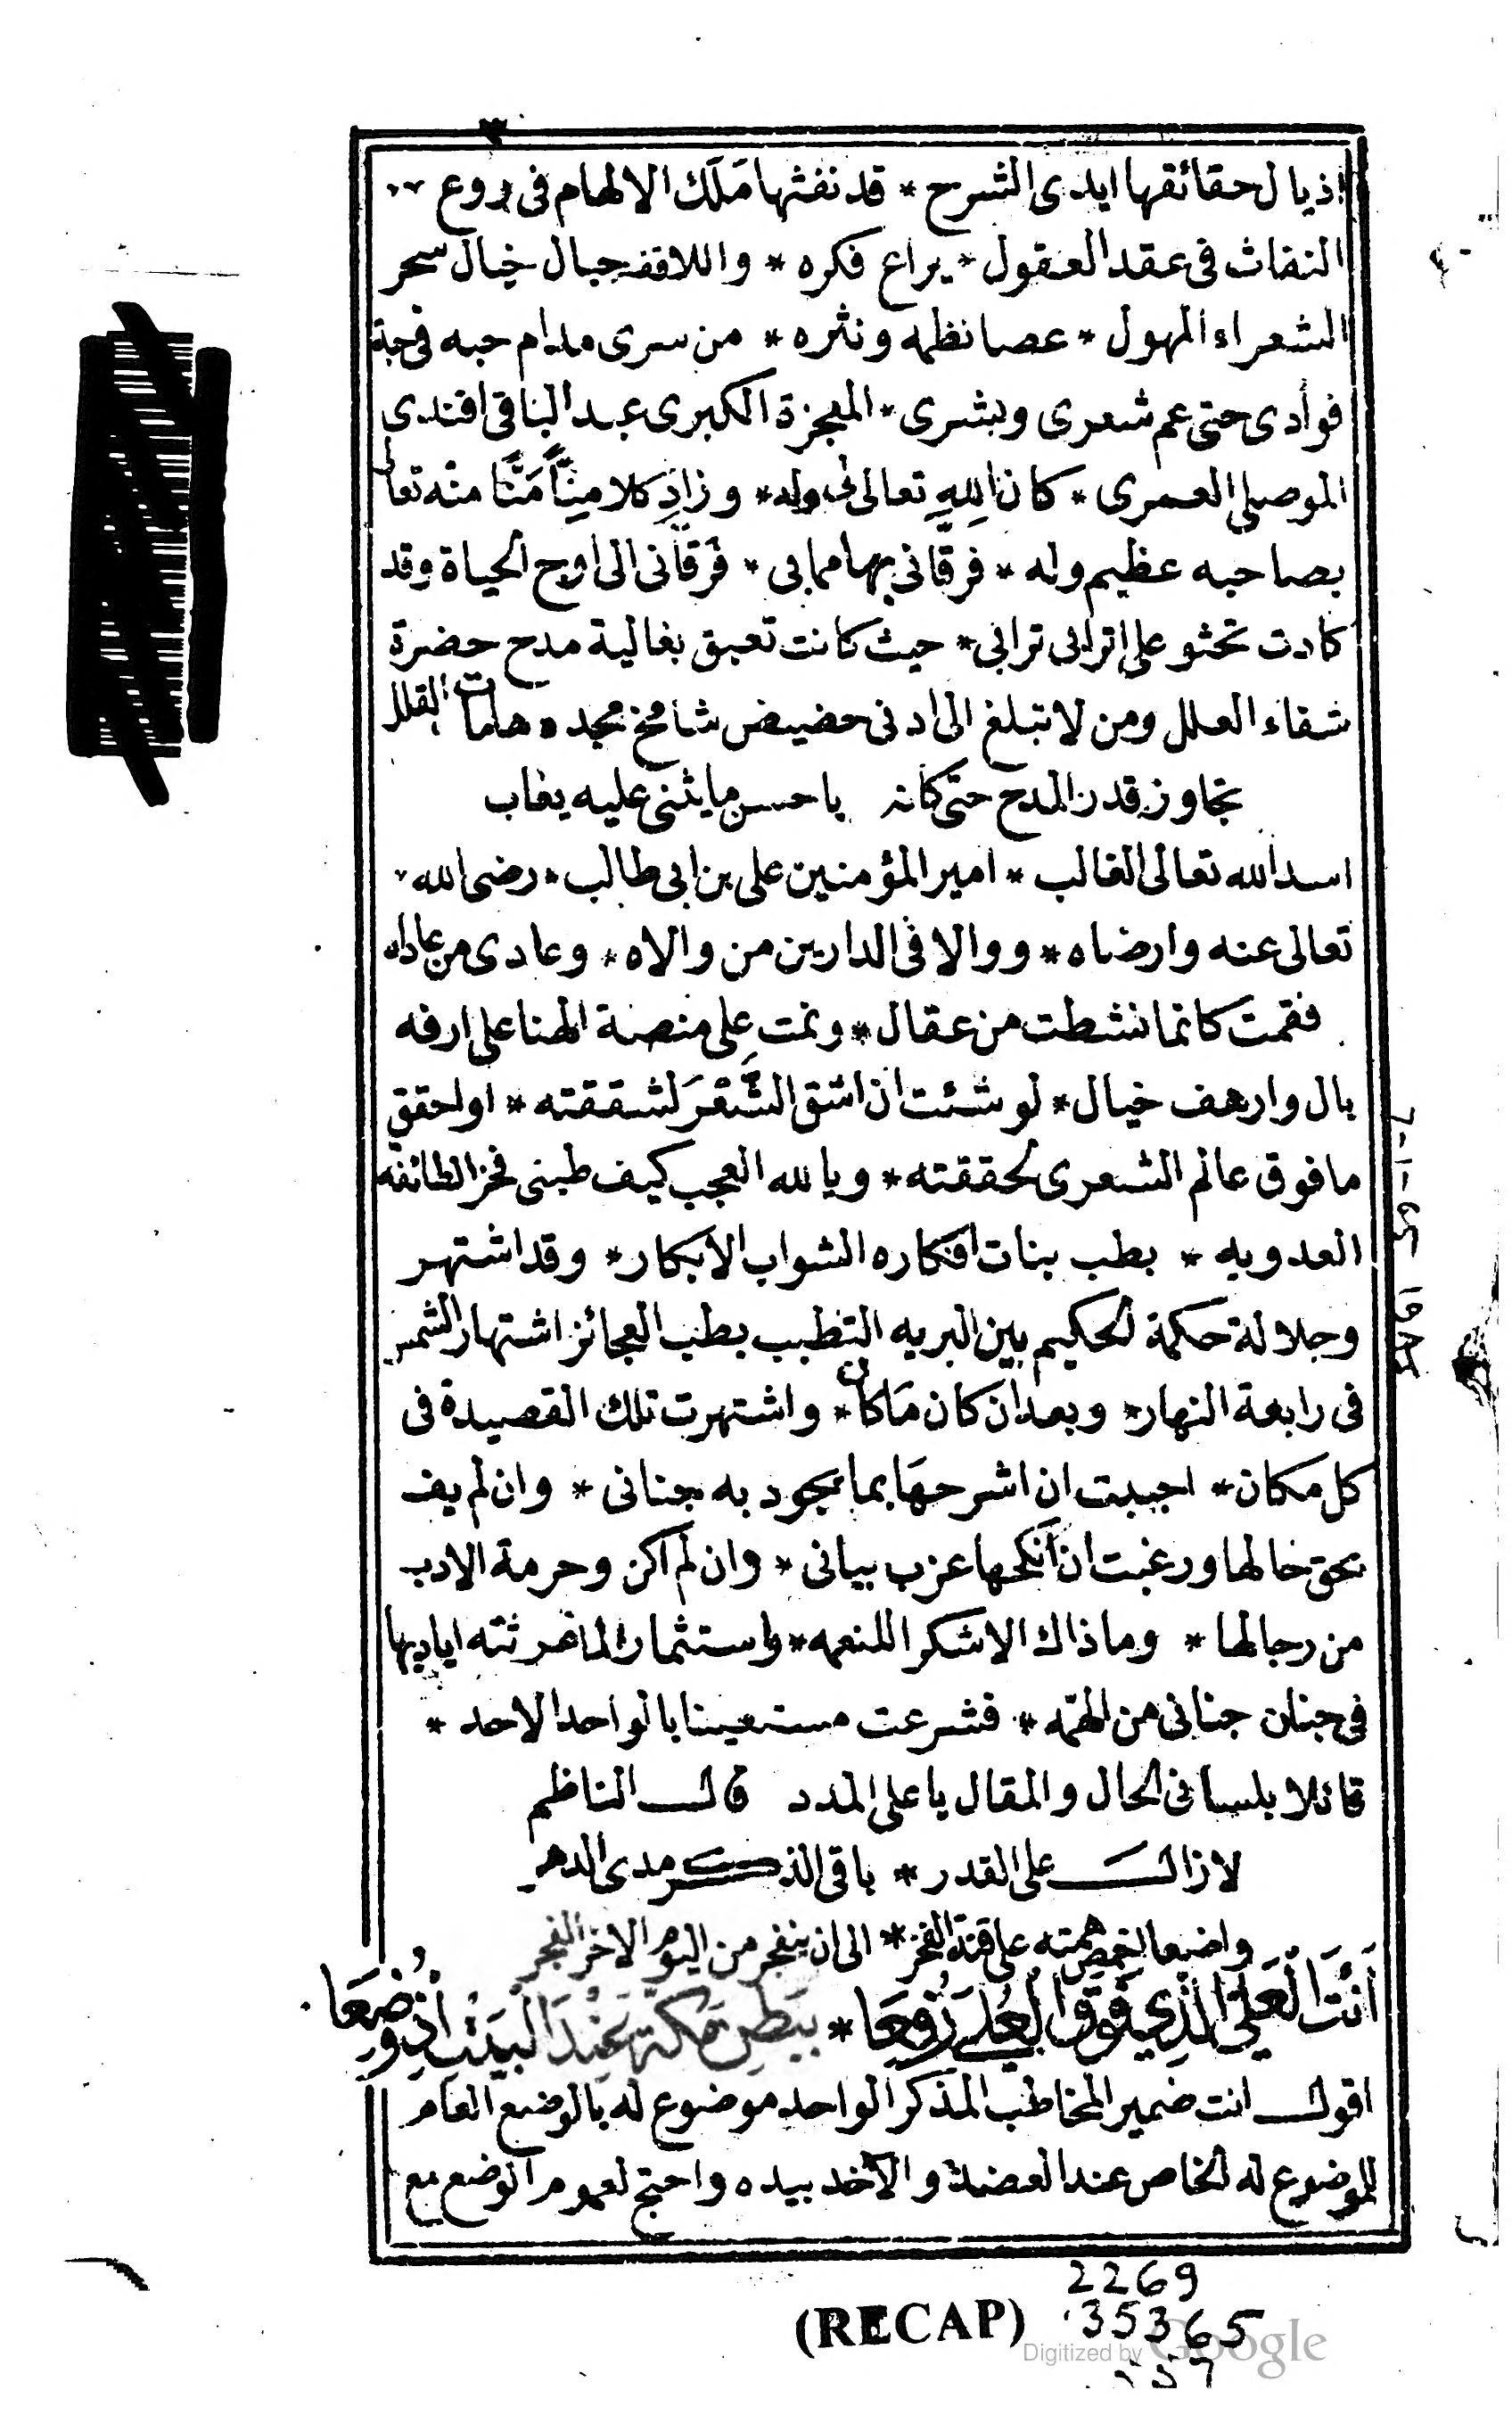 ٣
اذيال حقائقها ايدى الشرح * قد نفثها مَلَك الالهام فى روع
النفاث فى عقد العقول * يراع فكره * واللاقفه جبال خيال سحر
الشعراء المهول * عصا نظمه ونثره * من سرى مدام حبه فى جبة
فوأدى حتى عم شعرى وبشرى * المعجزة الكبرى عبد الباقى افندى
الموصلى العمرى * كان الله تعالى لى وله * وزاد كلا مِنّاً مَنّاً منه تعالى
بصاحبه عظيم وله * فرقّانى بها مما بى * فَرقانى الى اوج الحياة وقد
كادت تحثو على اترابى ترابى * حيث كانت تعبق بغالية مدح حضرة
شفاء العلل ومن لا تبلغ الى ادنى حضيض شامخ مجده هامات القلل
تجاوز قدر المدح حتى كانه يا حسن ما يثنى عليه يعاب
اسد الله تعالى الغالب * امير المؤمنين على بن ابى طالب * رضى الله
تعالى عنه وارضاه * ووالا فى الدارين من والاه * وعادى من عاداه
فقمت كانما نشطت من عقال * ونمت على منصة الهنا على ارفه
بال وارهف خيال * لو شئت ان اشق الشَّعْرَ لشققته * او احقق
ما فوق عالم الشعرى لحققته * ويا لله العجب كيف طبنى فخر الطائفه
العدويه * بطب بنات افكاره الشواب الابكار * وقد اشتهر
وجلالة حكمة الحكيم بين البريه التطبب بطب العجائز اشتهار الشمس
فى رابعة النهار * وبعد ان كان مَا كان * واشتهرت تلك القصيدة فى
كل مكان * احببت ان اشرحهَا بما يجود به جنانى * وان لم يف
بحق خالها ورغبت ان انكحها عزب بيانى * وان لم اكن وحرمة الادب
من رجالها * وما ذاك الا شكرا للنعمه * واستثمارا لما غرثته اياديها
فى جنان جنانى من الهمّه * فشرعت مستعينا بالواحد الاحد *
قائلا بلسانى الحال والمقال يا على المدد قال الناظم
لا زال على القدر * باقى الذكر مدى الدهر
واضعا اخمص همته على قنة الفخر * الى ان ينفجر من اليوم الاخر الفجر
اَنْتَ الْعَلِىُّ الَّذِي فَوْقَ الْعُلَى رُفِعَا * بِبَطْنِ مَكَّةَ عِنْدَ الْبَيْتِ اِذْ وُضِعَا
اقول انت ضمير المخاطب المذكر الواحد موضوع له بالوضع العام
للموضوع له الخاص عند العضد والآخذ بيده واحتج لعموم الوضع مع
2269
.35365
(RECAP)
Digitized by Google